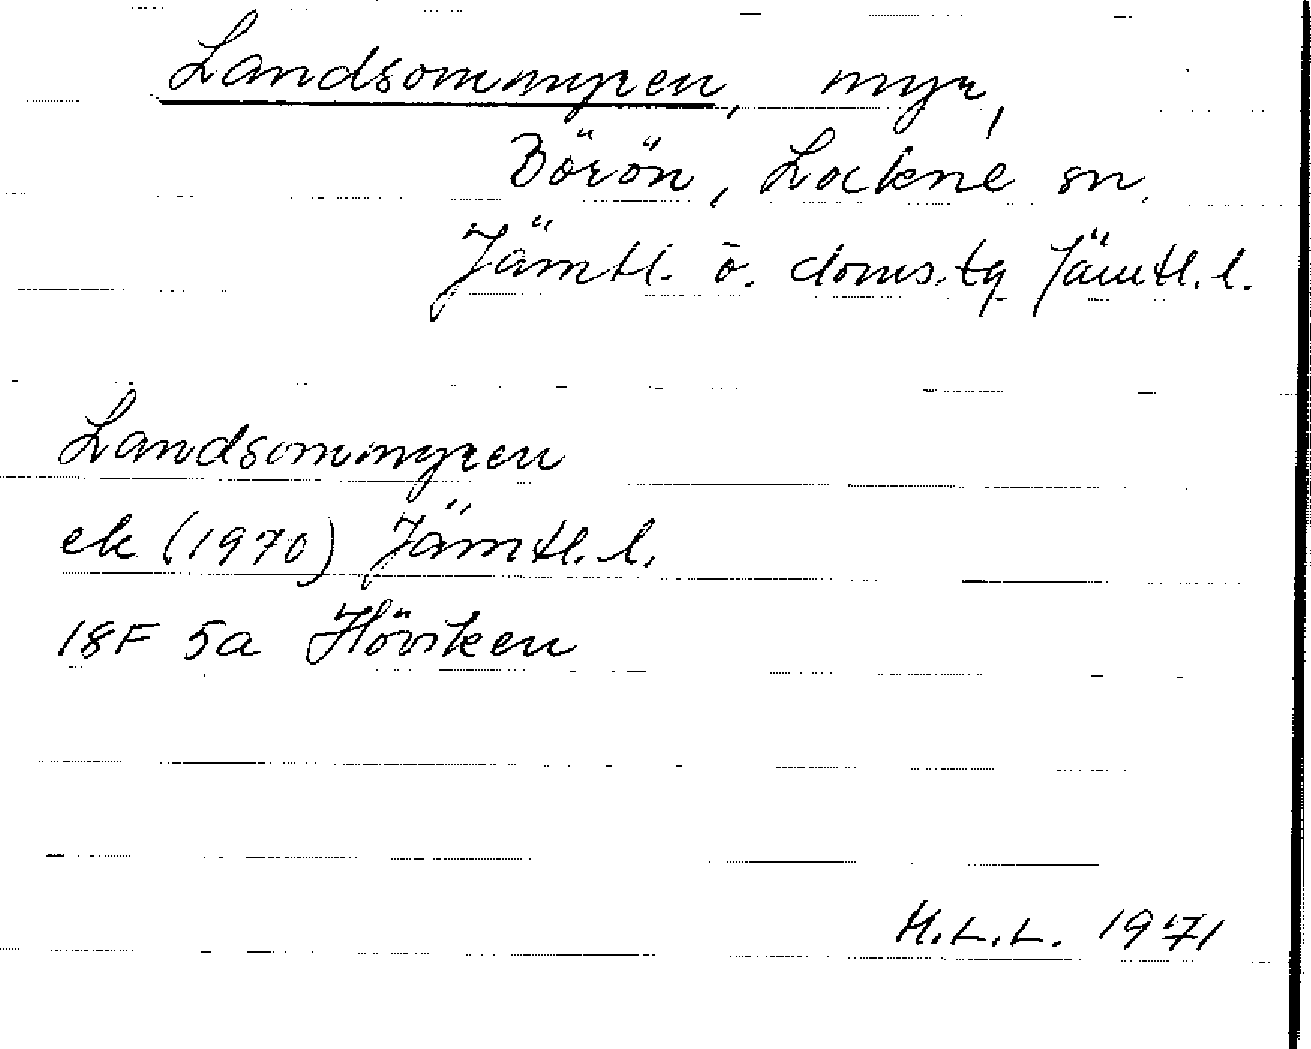 Landsommyren, myr,
Börön, Lockne sn.
Jämtl. ö. doms.tg Jämtl. l.
Landsommyren
ek (1970) Jämtl. l.
18F 5a Höviken
M.L.L. 1971